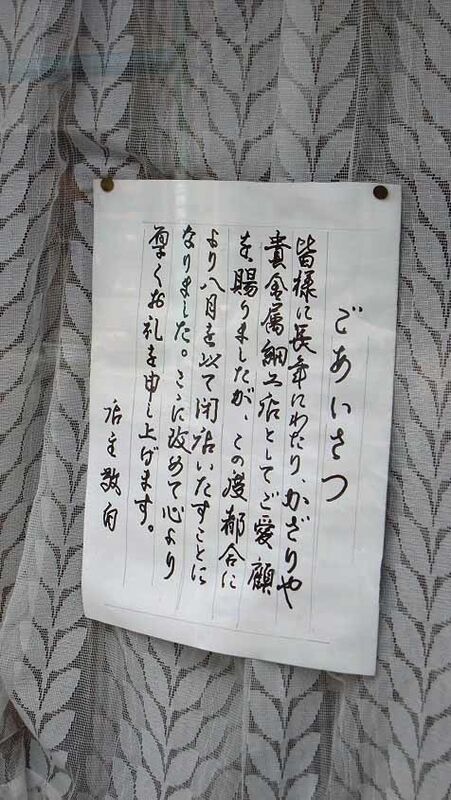 ごあいさつ
皆様に長年にわたり、かざりや
貴金属細工店としてご愛顧
を賜りましたが、この度都合に
より八月を以て閉店いたすことに
なりました。ここに改めて心より
厚くお礼を申し上げます。
店主敬白